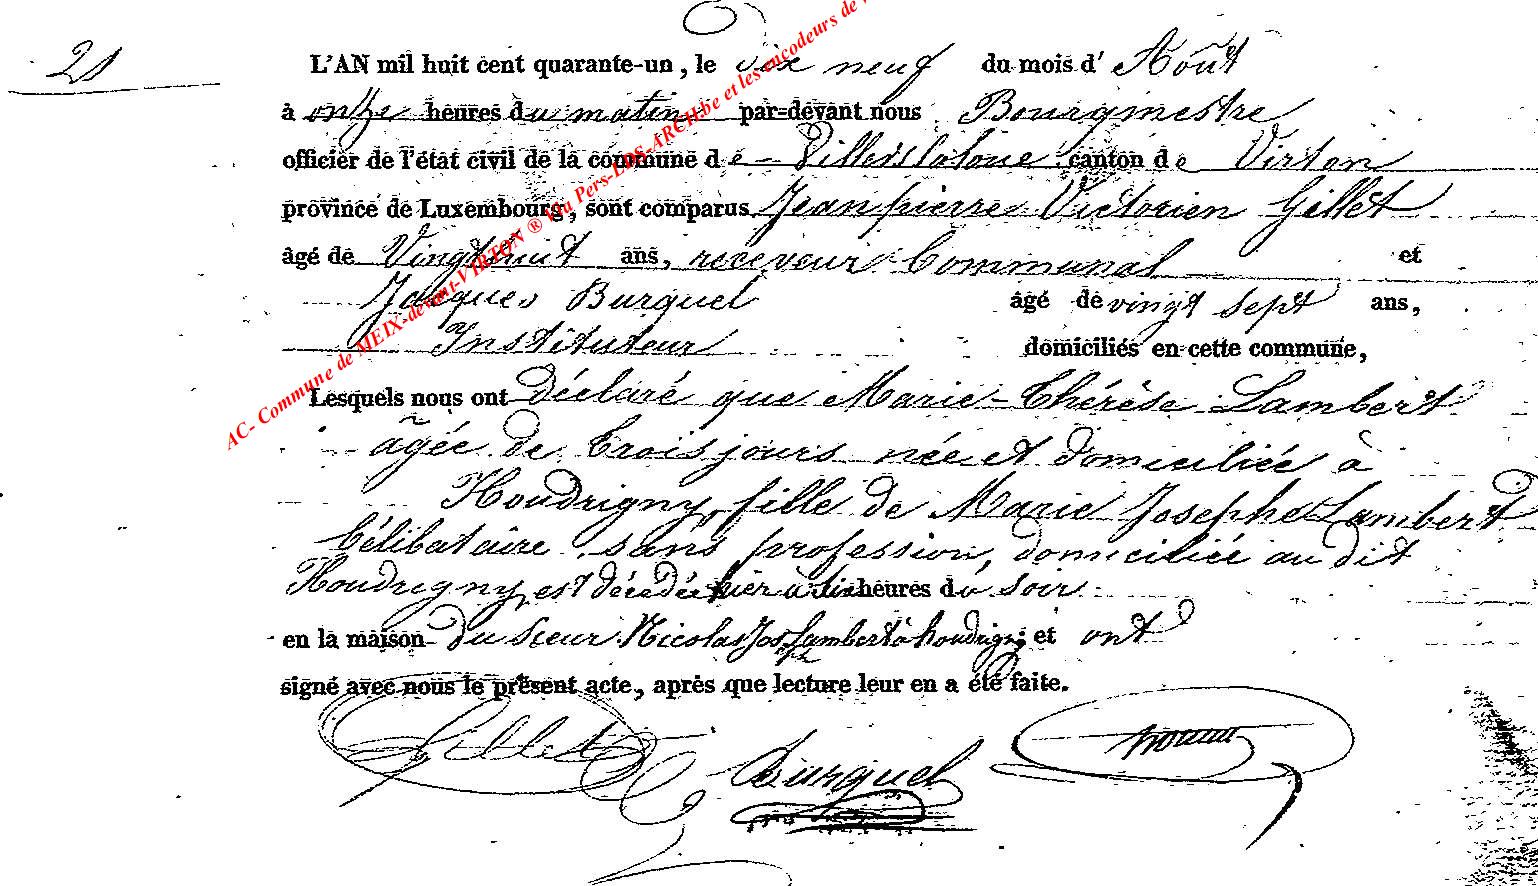 21
L'AN mil huit cent quarante-un, le dix neuf du mois d' Août
à onze heures du matin par-devant nous Bourgmestre
officier de l'état civil de la commune de Villers la loue canton de Virton
province de Luxembourg, sont comparus Jean pierre Victorien Gillet
âgé de Vingt huit ans, receveur Communal et
Jacques Burquel âgé de vingt sept ans,
Instituteur domiciliés en cette commune,
Lesquels nous ont déclaré que Marie-Thérèse Lambert
âgée de trois jours née et domiciliée à
Houdrigny, fille de Marie Josephe Lambert
Célibataire, sans profession, domiciliée au dit
Houdrigny, est décédée hier à six heures du soir
en la maison du sieur Nicolas Jos Lambert à houdrigny et ont
signé avec nous le présent acte, après que lecture leur en a été faite.
Gillet Burquel
AC- Commune de MEIX-devant-VIRTON ® Via Pers-LDS-ARCH.be et les encodeurs de